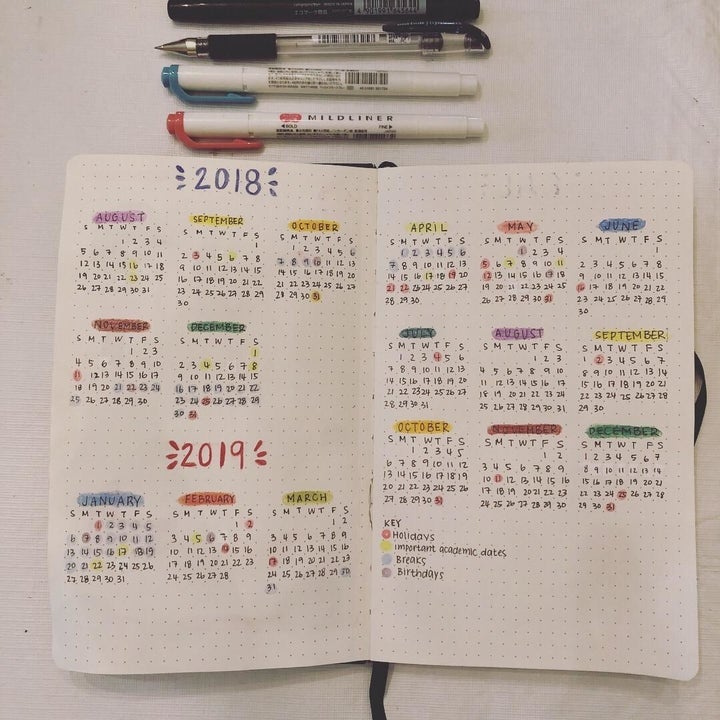 エコマーク商品
MILDLINER
BOLD
FINE
2018
AUGUST
S M T W T F S
1 2 3 4
5 6 7 8 9 10 11
12 13 14 15 16 17 18
19 20 21 22 23 24 25
26 27 28 29 30 31
SEPTEMBER
S M T W T F S
1
2 3 4 5 6 7 8
9 10 11 12 13 14 15
16 17 18 19 20 21 22
23 24 25 26 27 28 29
30
OCTOBER
S M T W T F S
1 2 3 4 5 6
7 8 9 10 11 12 13
14 15 16 17 18 19 20
21 22 23 24 25 26 27
28 29 30 31
NOVEMBER
S M T W T F S
1 2 3
4 5 6 7 8 9 10
11 12 13 14 15 16 17
18 19 20 21 22 23 24
25 26 27 28 29 30
DECEMBER
S M T W T F S
1
2 3 4 5 6 7 8
9 10 11 12 13 14 15
16 17 18 19 20 21 22
23 24 25 26 27 28 29
30 31
2019
JANUARY
S M T W T F S
1 2 3 4 5
6 7 8 9 10 11 12
13 14 15 16 17 18 19
20 21 22 23 24 25 26
27 28 29 30 31
FEBRUARY
S M T W T F S
1 2
3 4 5 6 7 8 9
10 11 12 13 14 15 16
17 18 19 20 21 22 23
24 25 26 27 28
MARCH
S M T W T F S
1 2
3 4 5 6 7 8 9
10 11 12 13 14 15 16
17 18 19 20 21 22 23
24 25 26 27 28 29 30
31
APRIL
S M T W T F S
1 2 3 4 5 6
7 8 9 10 11 12 13
14 15 16 17 18 19 20
21 22 23 24 25 26 27
28 29 30
MAY
S M T W T F S
1 2 3 4
5 6 7 8 9 10 11
12 13 14 15 16 17 18
19 20 21 22 23 24 25
26 27 28 29 30 31
JUNE
S M T W T F S
1
2 3 4 5 6 7 8
9 10 11 12 13 14 15
16 17 18 19 20 21 22
23 24 25 26 27 28 29
30
JULY
S M T W T F S
1 2 3 4 5 6
7 8 9 10 11 12 13
14 15 16 17 18 19 20
21 22 23 24 25 26 27
28 29 30 31
AUGUST
S M T W T F S
1 2 3
4 5 6 7 8 9 10
11 12 13 14 15 16 17
18 19 20 21 22 23 24
25 26 27 28 29 30 31
SEPTEMBER
S M T W T F S
1 2 3 4 5 6 7
8 9 10 11 12 13 14
15 16 17 18 19 20 21
22 23 24 25 26 27 28
29 30
OCTOBER
S M T W T F S
1 2 3 4 5
6 7 8 9 10 11 12
13 14 15 16 17 18 19
20 21 22 23 24 25 26
27 28 29 30 31
NOVEMBER
S M T W T F S
1 2
3 4 5 6 7 8 9
10 11 12 13 14 15 16
17 18 19 20 21 22 23
24 25 26 27 28 29 30
DECEMBER
S M T W T F S
1 2 3 4 5 6 7
8 9 10 11 12 13 14
15 16 17 18 19 20 21
22 23 24 25 26 27 28
29 30 31
KEY
Holidays
important academic dates
Breaks
Birthdays